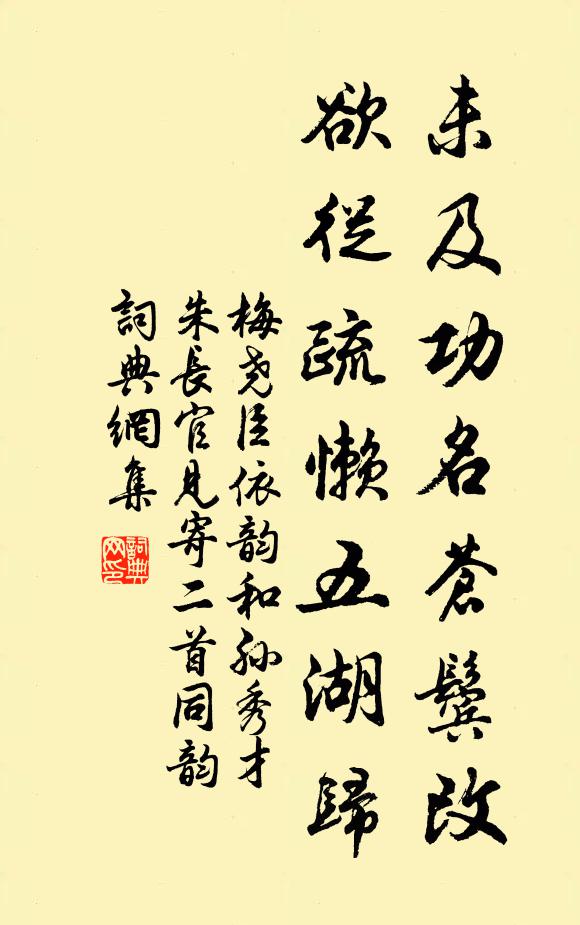 未及功名蒼鬢改
欲從疏懶五湖歸
梅堯臣依韵和孫秀才
朱長官見寄二首同韵
詞典網集
詞典
网印